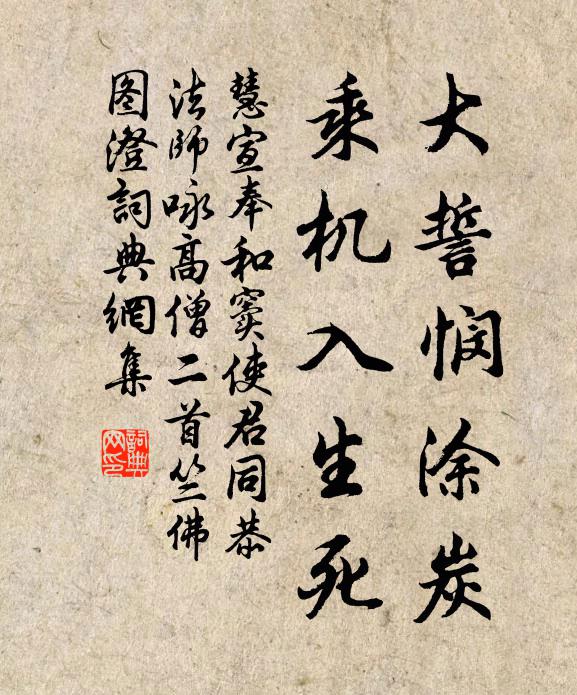 大誓悯涂炭
乘机入生死
慧宣奉和窦使君同恭
法师咏高僧二首竺佛
图澄詞典網集
詞典
网印